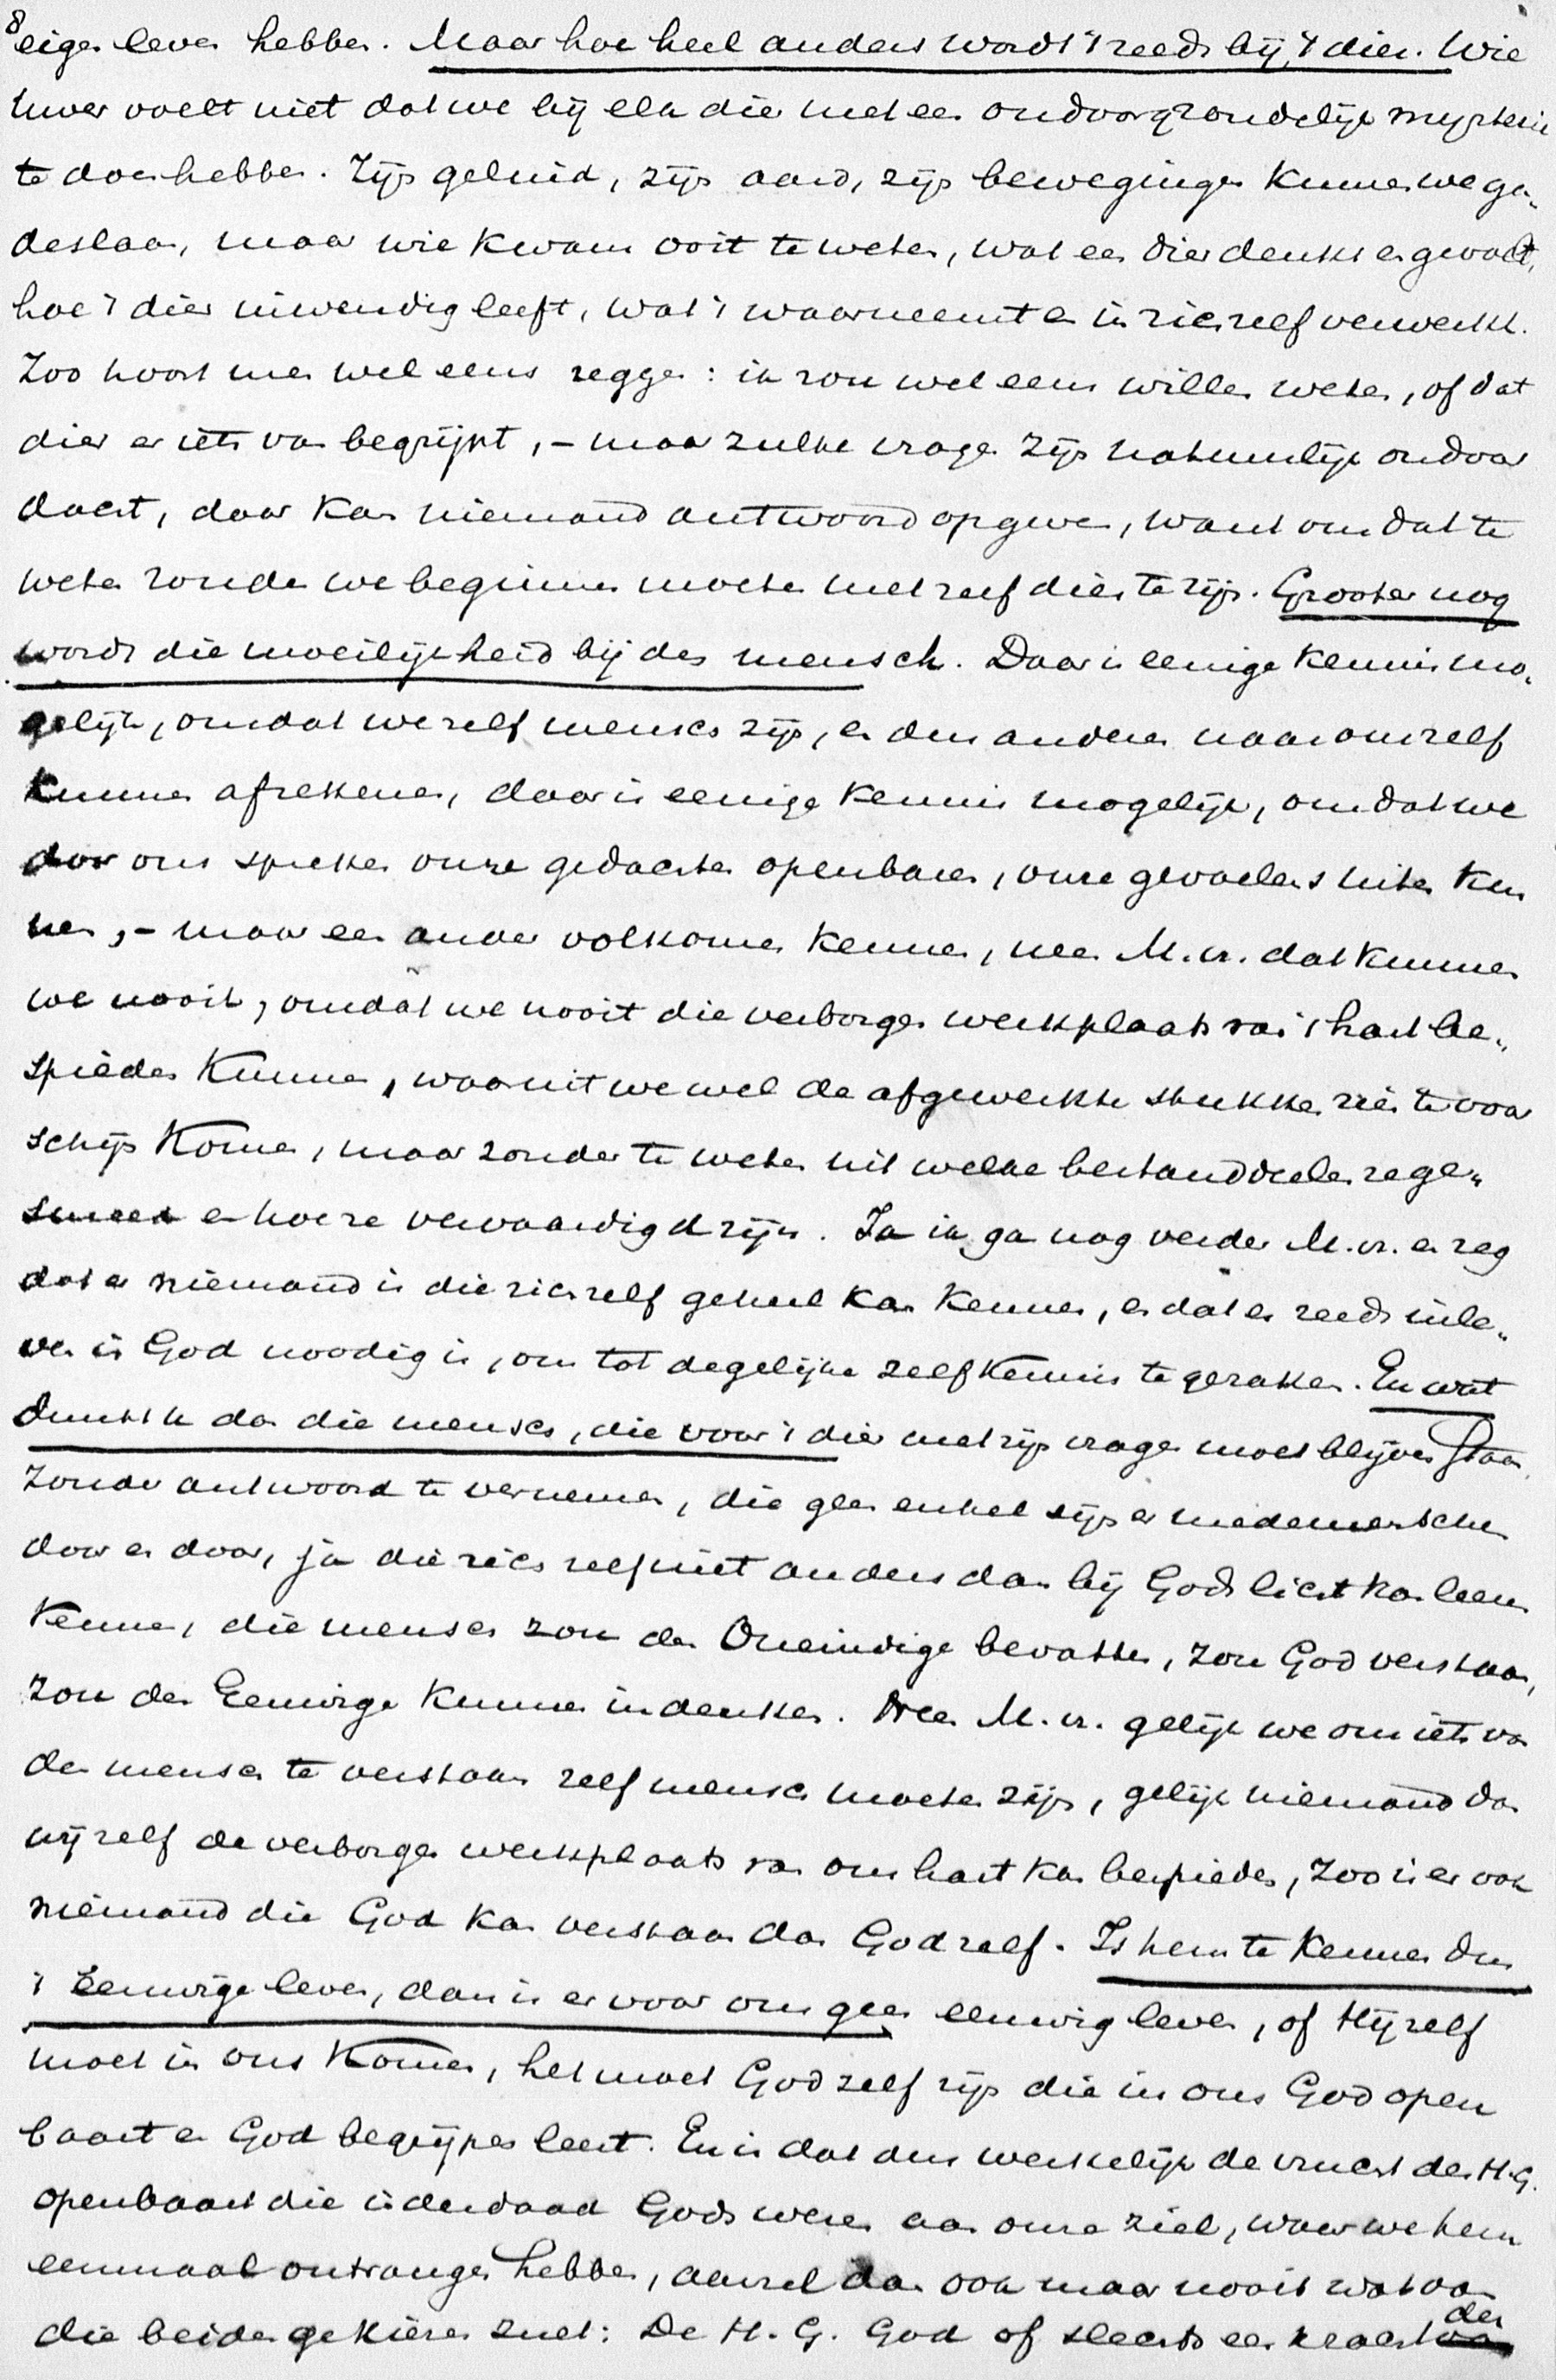 8
eigen leven hebben. Maar hoe heel anders wordt 't reeds bij 't dier. Wie
uwer voelt niet dat we bij elk dier met een ondoorgrondelijk mysterie
te doen hebben. Zijn geluid, zijn aard, zijn bewegingen kunnen we ga„
deslaan, maar wie kwam ooit te weten, wat een dier denkt en gevoelt,
hoe 't dier inwendig leeft, wat 't waarneemt en in zichzelf verwerkt.
Zoo hoort men wel eens zeggen: ik zou wel eens willen weten, of dat
dier er iets van begrijpt, – maar zulke vragen zijn natuurlijk ondoor
dacht, daar kan niemand antwoord op geven, want om dat te
weten zouden we beginnen moeten met zelf dier te zijn. Grooter nog
wordt die moeilijkheid bij den mensch. Daar is eenige kennis mo„
gelijk, omdat we zelf mensch zijn, en dus anderen naar onszelf
kunnen afrekenen, daar is eenige kennis mogelijk, omdat we
door ons spreken onze gedachten openbaren, onze gevoelens uiten kun
nen, – maar een ander volkomen kennen, neen M.vr. dat kunnen
we nooit, omdat we nooit die verborgen werkplaats van 't hart be„
spieden kunnen, waaruit we wel de afgewerkte stukken zien te voor
schijn komen, maar zonder te weten uit welke bestanddeelen ze ge„
smeed en hoe ze vervaardigd zijn. Ja ik ga nog verder M.vr. en zeg
dat er niemand is die zichzelf geheel kan kennen, en dat er reeds inle„
ven in God noodig is, om tot degelijke zelfkennis te geraken. En wat
dunkt u dan die mensch, die voor 't dier met zijn vragen moet blijven staan
zonder antwoord te vernemen, die geen enkel zijner medemenschen
door en door, ja die zich zelf niet anders dan bij Gods licht kan leeren
kennen, die mensch zou den Oneindige bevatten, zou God verstaan,
zou den Eeuwige kunnen indenken. Neen M.vr. gelijk we om iets van
den mensch te verstaan zelf mensch moeten zijn, gelijk niemand dan
wij zelf de verborgen werkplaats van ons hart kan bespieden, zoo is er ook
niemand die God kan verstaan dan God zelf. Is hem te kennen dus
't Eeuwige leven, dan is er voor ons geen eeuwig leven, of Hij zelf
moet in ons komen, het moet God zelf zijn die in ons God open
baart en God begrijpen leert. En is dat dus werkelijk de vrucht der H.G.
openbaart die inderdaad Gods wezen aan onze ziel, waar we hem
eenmaal ontvangen hebben, aarzel dan ook maar nooit wat van
die beiden ge kiezen zult: De H. G. God of slechts een kracht der